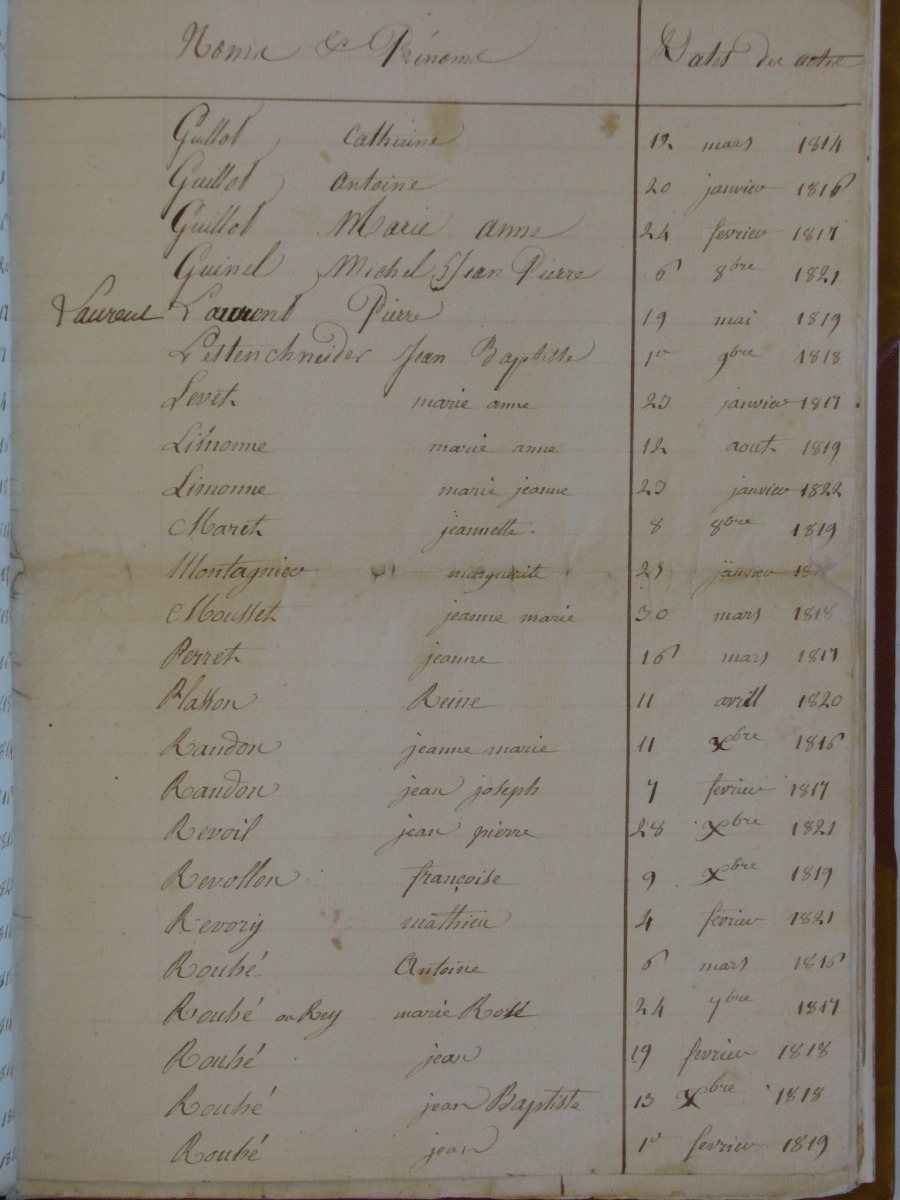 Noms & Prénoms Dates des actes
Guillot Catherine 12 mars 1814
Guillot Antoine 20 janvier 1816
Guillot Marie anne 24 fevrier 1817
Guinel Michel Jean Pierre 6 8bre 1821
Laurent Laurent Pierre 19 mai 1819
Lettenchneider Jean Baptiste 1er 9bre 1818
Levet marie anne 23 janvier 1817
Limonne marie anne 12 aout 1819
Limonne marie jeanne 23 janvier 1822
Maret jeannette 8 8bre 1819
Montagnier marguerite 25 janvier
Mousset jeanne marie 30 mars 1818
Perret jeanne 16 mars 1817
Plasson Reine 11 avrill 1820
Randon jeanne marie 11 Xbre 1816
Randon jean joseph 7 fevrier 1817
Revoil jean pierre 28 Xbre 1821
Revollon françoise 9 Xbre 1819
Revory mathieu 4 fevrier 1821
Roubé Antoine 6 mars 1816
Roubé ou Rey marie Rose 24 7bre 1817
Roubé jean 19 fevrier 1818
Roubé jean Baptiste 13 Xbre 1818
Roubé jean 1er fevrier 1819